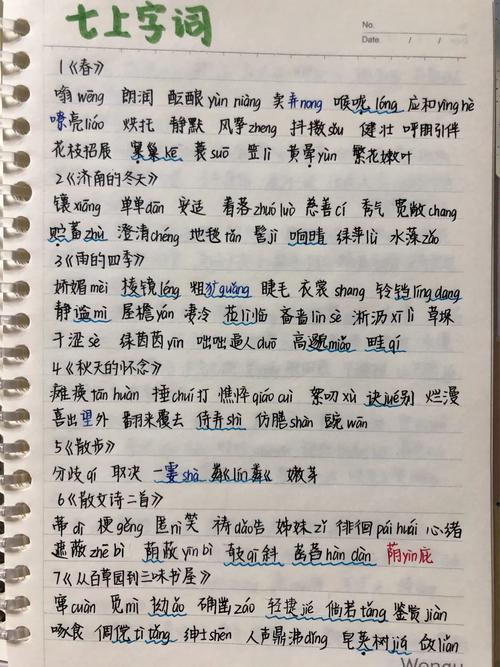 七上字词
No.
Date. / /
1《春》
嗡 wēng 朗润 酝酿 yùn niàng 卖弄 nong 喉咙 lóng 应和 yìng hè
嘹亮 liáo 烘托 静默 风筝 zheng 抖擞 sǒu 健壮 呼朋引伴
花枝招展 巢 蓑 suō 笠 lì 黄晕 yùn 繁花嫩叶
2《济南的冬天》
镶 xiāng 单单 dān 安适 着落 zhuó luò 慈善 cí 秀气 宽敞 chang
贮蓄 zhù 澄清 chéng 地毯 tǎn 髻 jì 响晴 绿萍 lǜ 水藻 zǎo
3《雨的四季》
娇媚 mèi 棱镜 léng 粗犷 guǎng 睫毛 衣裳 shang 铃铛 líng dang
静谧 mì 屋檐 yán 凄冷 莅临 吝啬 lìn sè 淅沥 xī lì 草垛
干涩 sè 绿茵茵 yīn 咄咄逼人 duō 高邈 miǎo 畦 qí
4《秋天的怀念》
瘫痪 tān huàn 捶 chuí 打 憔悴 qiáo cuì 絮叨 xù 诀 jué 别 烂漫
喜出望外 翻来覆去 侍弄 shì 仿膳 shàn 豌 wān
5《散步》
分歧 qí 取决 一霎 shà 粼粼 lín 嫩芽
6《散文诗二首》
蒂 dì 梗 gěng 匿 nì 笑 祷 dǎo 告 姊妹 zǐ 徘徊 pái huái 心绪
遮蔽 zhē bì 荫蔽 yīn bì 攲斜 菡萏 hàn dàn 荫 yìn 庇
7《从百草园到三味书屋》
攒 cuán 觅 mì 拗 ǎo 确凿 záo 轻捷 jié 倘若 tǎng 鉴赏 jiàn
啄食 倜傥 tì tǎng 绅士 shēn 人声鼎沸 dǐng 皂荚树 jiá 敛 liǎn